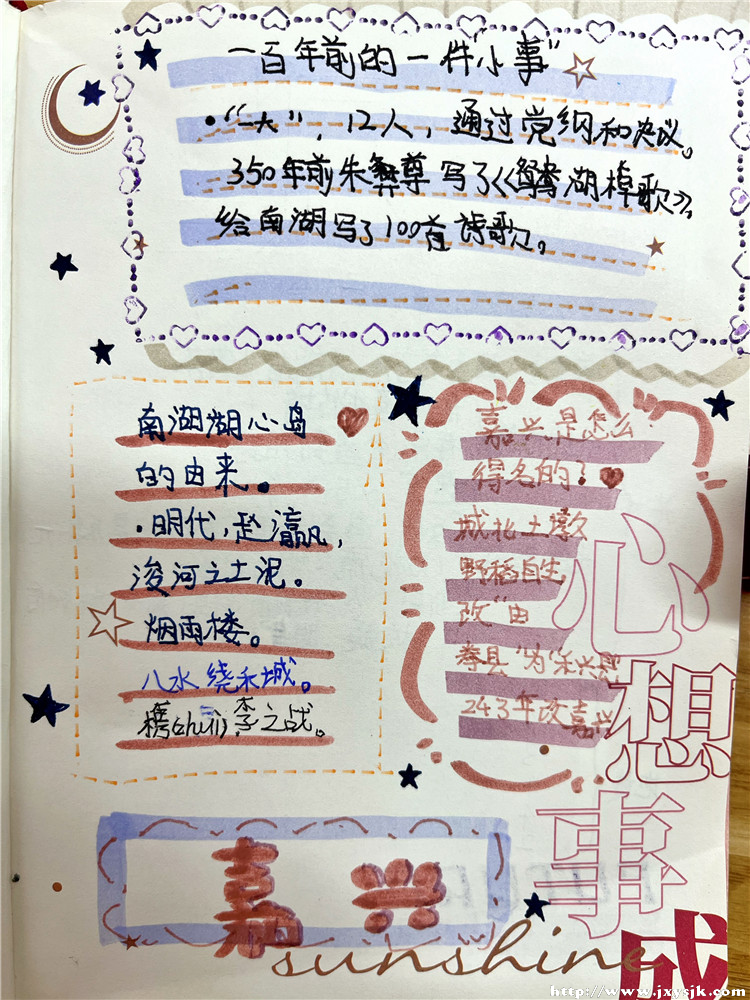 一百年前的一件"小事"
•"一大",12人,通过党纲和决议。
350年前朱彝尊写了《鸳湖棹歌》,
给南湖写了100首诗歌。
南湖湖心岛
的由来。
·明代,赵瀛,
浚河之土泥。
烟雨楼。
八水绕禾城。
槜(zhuì)李之战。
嘉兴是怎么
得名的?
城北土墩
野稻自生,
改"由
拳县"为"禾兴县"
243年改嘉兴
心想事成
嘉兴
sunshine
http://www.jxysjk.com